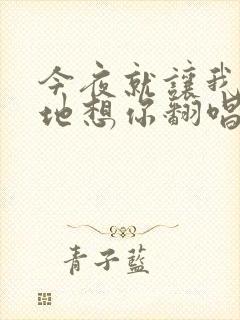 今夜就讓我
地想你翻唱
青子藍